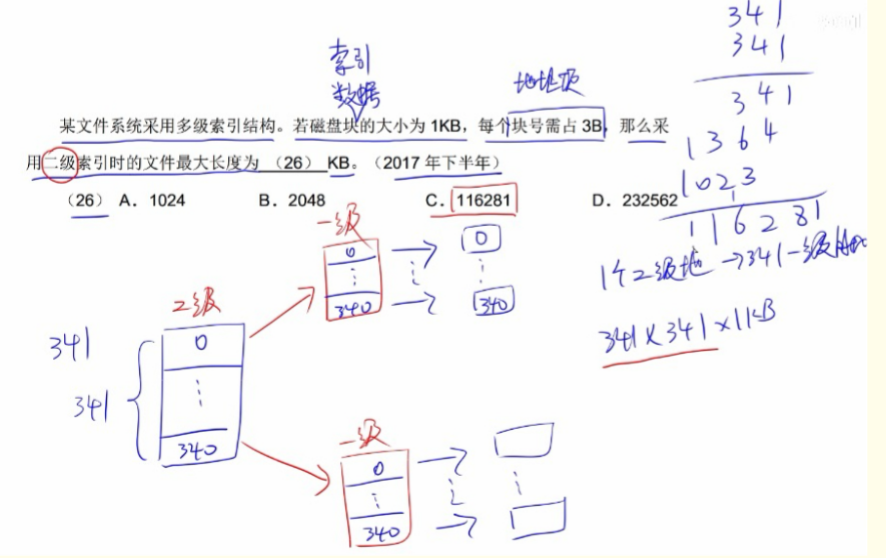 341
341
341
1364
1023
1
116281
索引
数据
地址项
某文件系统采用多级索引结构。若磁盘块的大小为 1KB，每个块号需占 3B，那么采
用二级索引时的文件最大长度为 （26） KB。（2017 年下半年）
（26） A．1024 B．2048 C．116281 D．232562
1个2级地 →341一级
341×341×1KB
一级
0
340
0
340
2级
341
341
0
340
一级
0
340